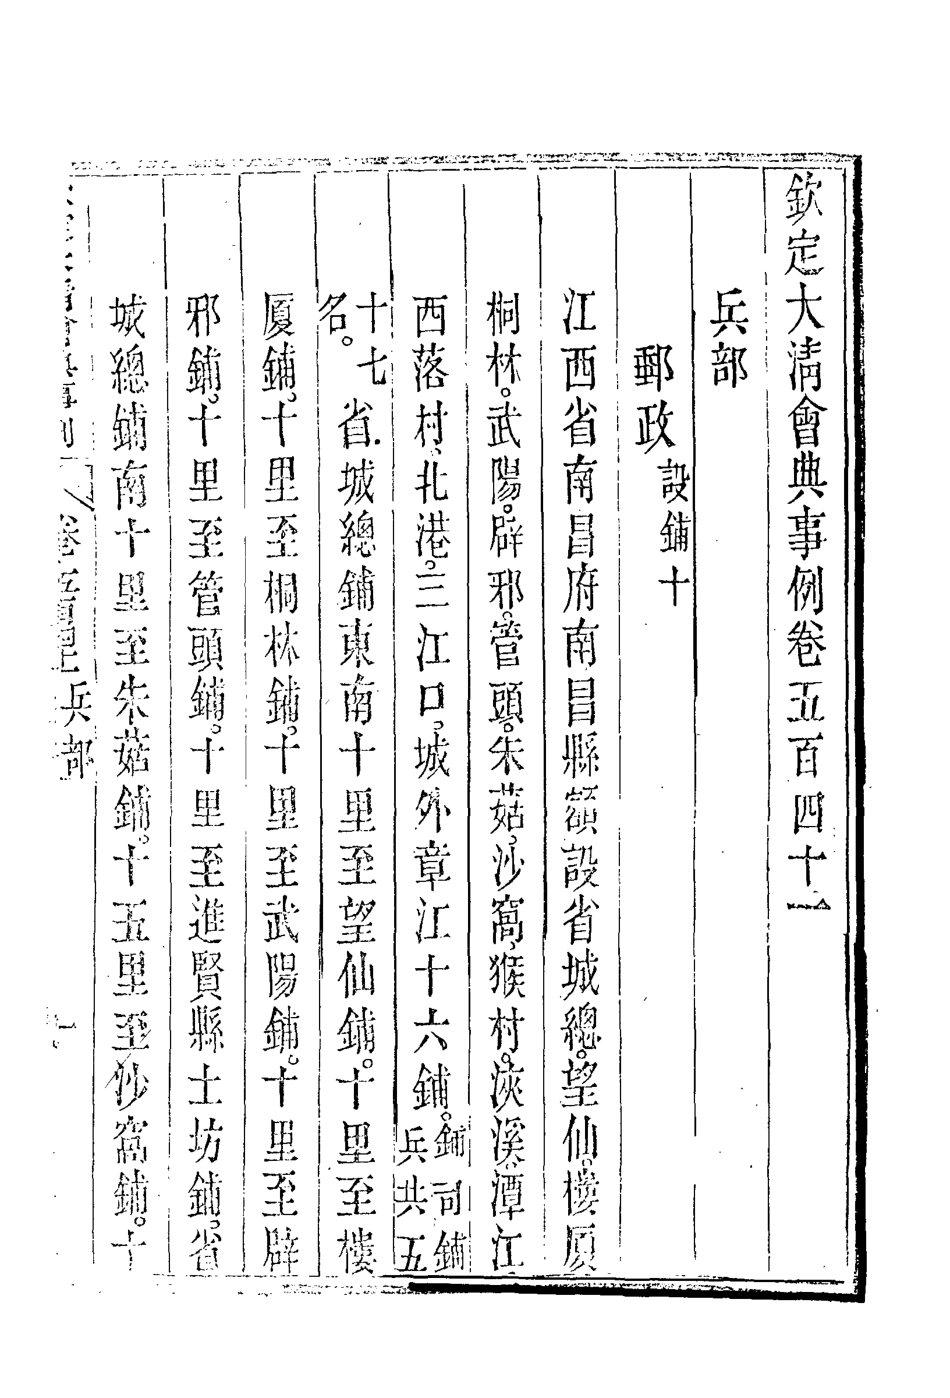 欽定大淸會典事例卷五百四十一
兵部
郵政設鋪十
江西省南昌府南昌縣額設省城總。望仙。樓厦
桐林。武陽。辟邪。管頭。朱菇。沙窩。猴村。浹溪。潭江
西落村。北港。三江口。城外章江十六鋪。鋪司鋪兵共五
十七名。省城總鋪東南十里至望仙鋪。十里至樓
厦鋪。十里至桐林鋪。十里至武陽鋪。十里至辟
邪鋪。十里至管頭鋪。十里至進賢縣土坊鋪。省
城總鋪南十里至朱菇鋪。十五里至沙窩鋪。十
兵部